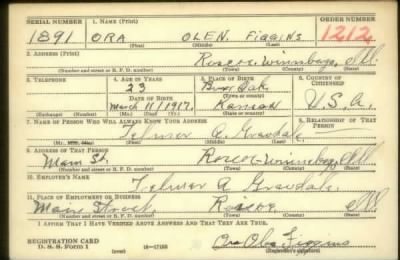 SERIAL NUMBER 1. NAME (Print) ORDER NUMBER
1891 ORA OLEN FIGGINS 1212
(First) (Middle) (Last)
2. ADDRESS (Print)
Roscoe Winnebago, Ill.
(Number and street or R. F. D. number) (Town) (County) (State)
3. TELEPHONE 4. AGE IN YEARS 5. PLACE OF BIRTH 6. COUNTRY OF CITIZENSHIP
23 Burr Oak
DATE OF BIRTH (Town or county)
March 11, 1917. Kansas U.S.A.
(Exchange) (No.) (Mo.) (Day) (Yr.) (State or country)
7. NAME OF PERSON WHO WILL ALWAYS KNOW YOUR ADDRESS 8. RELATIONSHIP OF THAT PERSON
Telmer A. Gravdale
(Mr., Mrs., Miss) (First) (Middle) (Last)
9. ADDRESS OF THAT PERSON
Main St. Roscoe Winnebago Ill
(Number and street or R. F. D. number) (Town) (County) (State)
10. EMPLOYER'S NAME
Telmer A Gravdale
11. PLACE OF EMPLOYMENT OR BUSINESS
Main Street Roscoe Ill.
(Number and street or R. F. D. number) (Town) (County) (State)
I AFFIRM THAT I HAVE VERIFIED ABOVE ANSWERS AND THAT THEY ARE TRUE.
REGISTRATION CARD
D. S. S. Form 1 (over) 16—17105 Figgins
(Registrant's signature)